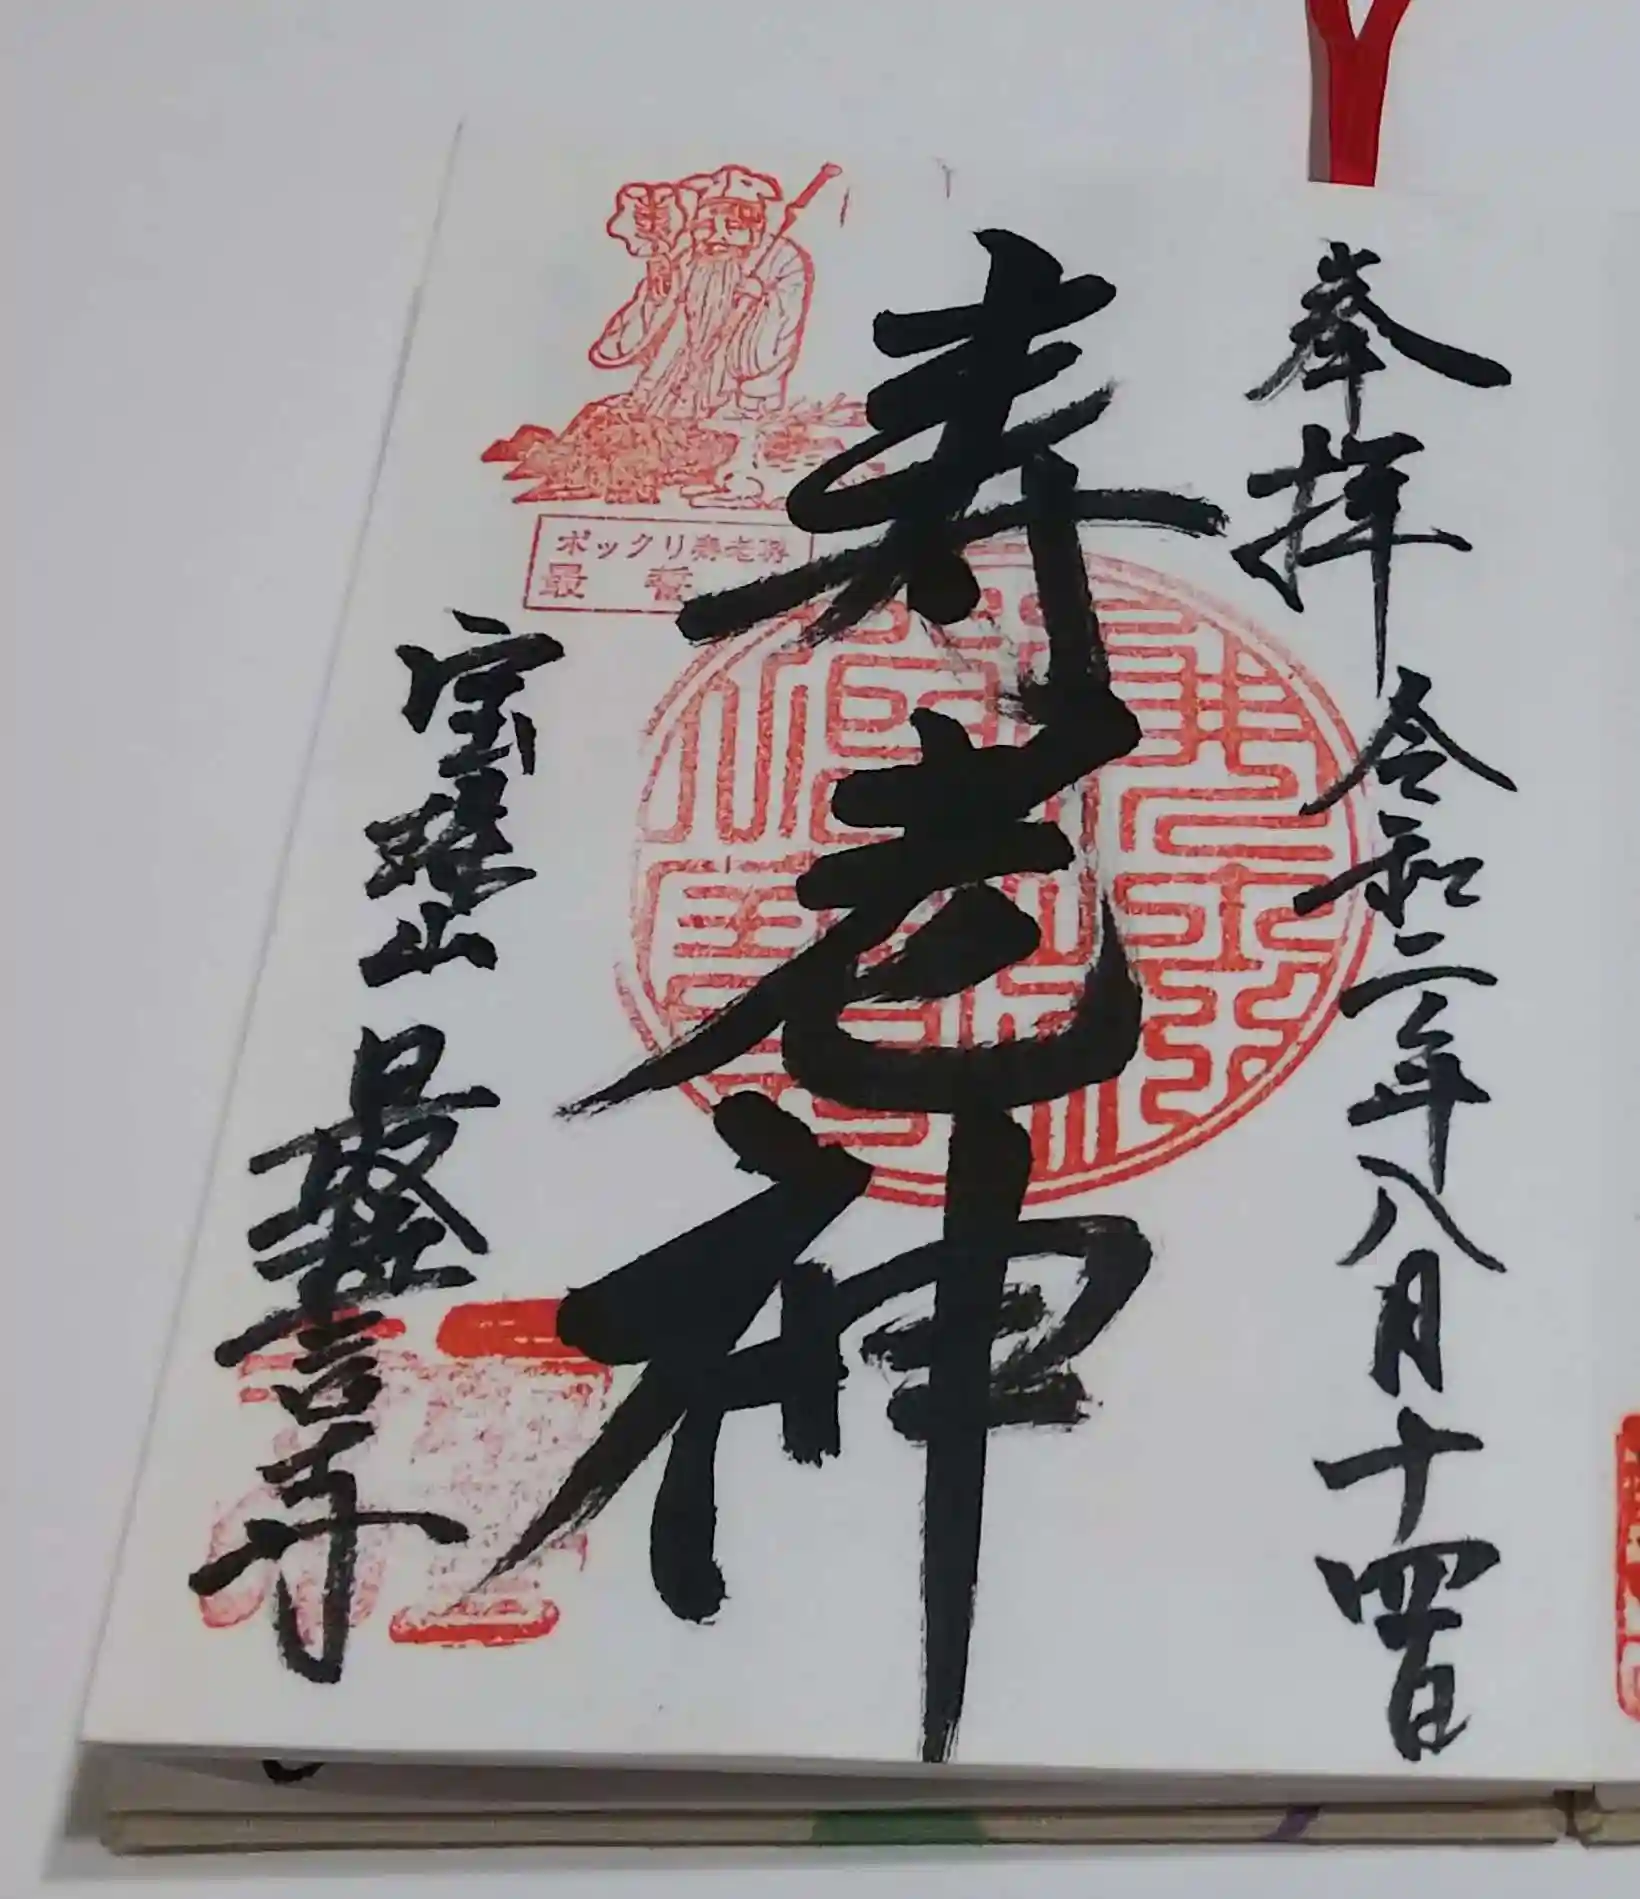 奉拝 令和二年八月十四日
寿老神
ポックリ寿老神
最誓
宝珠山 最誓寺